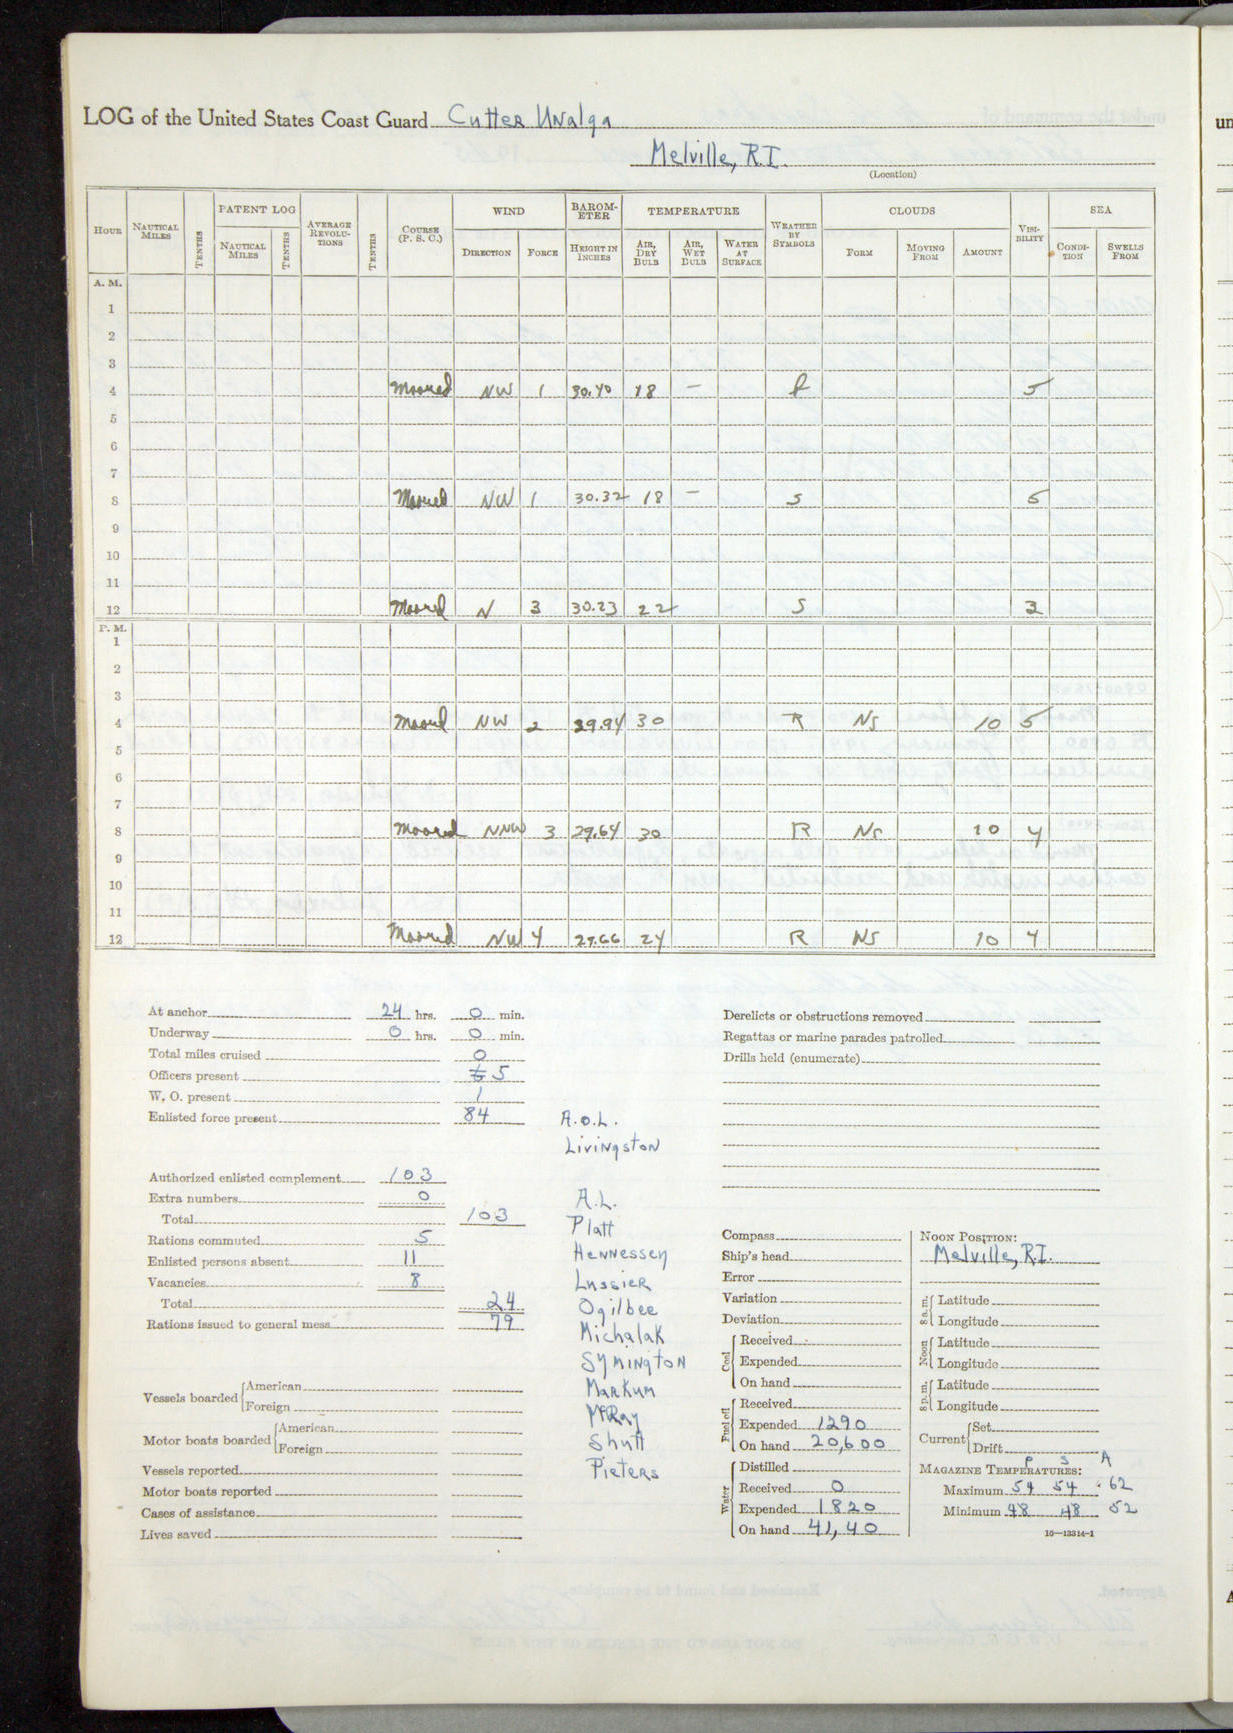 LOG of the United States Coast Guard Cutter Unalga
Melville, R.I.
(Location)
HOUR NAUTICAL MILES TENTHS PATENT LOG NAUTICAL MILES TENTHS AVERAGE REVOLUTIONS TENTHS COURSE (P. S. C.) WIND DIRECTION FORCE BAROMETER HEIGHT IN INCHES TEMPERATURE AIR, DRY BULB AIR, WET BULB WATER AT SURFACE WEATHER BY SYMBOLS CLOUDS FORM MOVING FROM AMOUNT VISIBILITY SEA CONDITION SWELLS FROM
A. M.
1
2
3
4 Moored NW 1 30.40 18 – 5
5
6
7
8 Moored NW 1 30.32 18 – S 5
9
10
11
12 Moored N 3 30.23 22 S 3
P. M.
1
2
3
4 Moored NW 2 29.94 30 R NS 10 5
5
6
7
8 Moored NNW 3 29.64 30 R NS 10 4
9
10
11
12 Moored NW 4 29.66 24 R NS 10 4
At anchor 24 hrs. 0 min.
Underway 0 hrs. 0 min.
Total miles cruised 0
Officers present 5
W. O. present 1
Enlisted force present 84
A.O.L.
Livingston
Authorized enlisted complement 103
Extra numbers 0
Total 103
Rations commuted 5
Enlisted persons absent 11
Vacancies 8
Total 24
Rations issued to general mess 79
A.L.
Platt
Hennessey
Lussier
Ogilbee
Michalak
Symington
Markum
McRay
Shutt
Pieters
Vessels boarded American
Foreign
Motor boats boarded American
Foreign
Vessels reported
Motor boats reported
Cases of assistance
Lives saved
Derelicts or obstructions removed
Regattas or marine parades patrolled
Drills held (enumerate)
Compass
Ship's head
Error
Variation
Deviation
Coal Received
Expended
On hand
Fuel oil Received
Expended 1290
On hand 20,600
Water Distilled
Received 0
Expended 1820
On hand 41,40
NOON POSITION:
Melville, R.I.
8 a. m. Latitude
Longitude
Noon Latitude
Longitude
8 p. m. Latitude
Longitude
Current Set
Drift
P S A
MAGAZINE TEMPERATURES:
Maximum 54 54 62
Minimum 48 48 52
10—13314-1
un